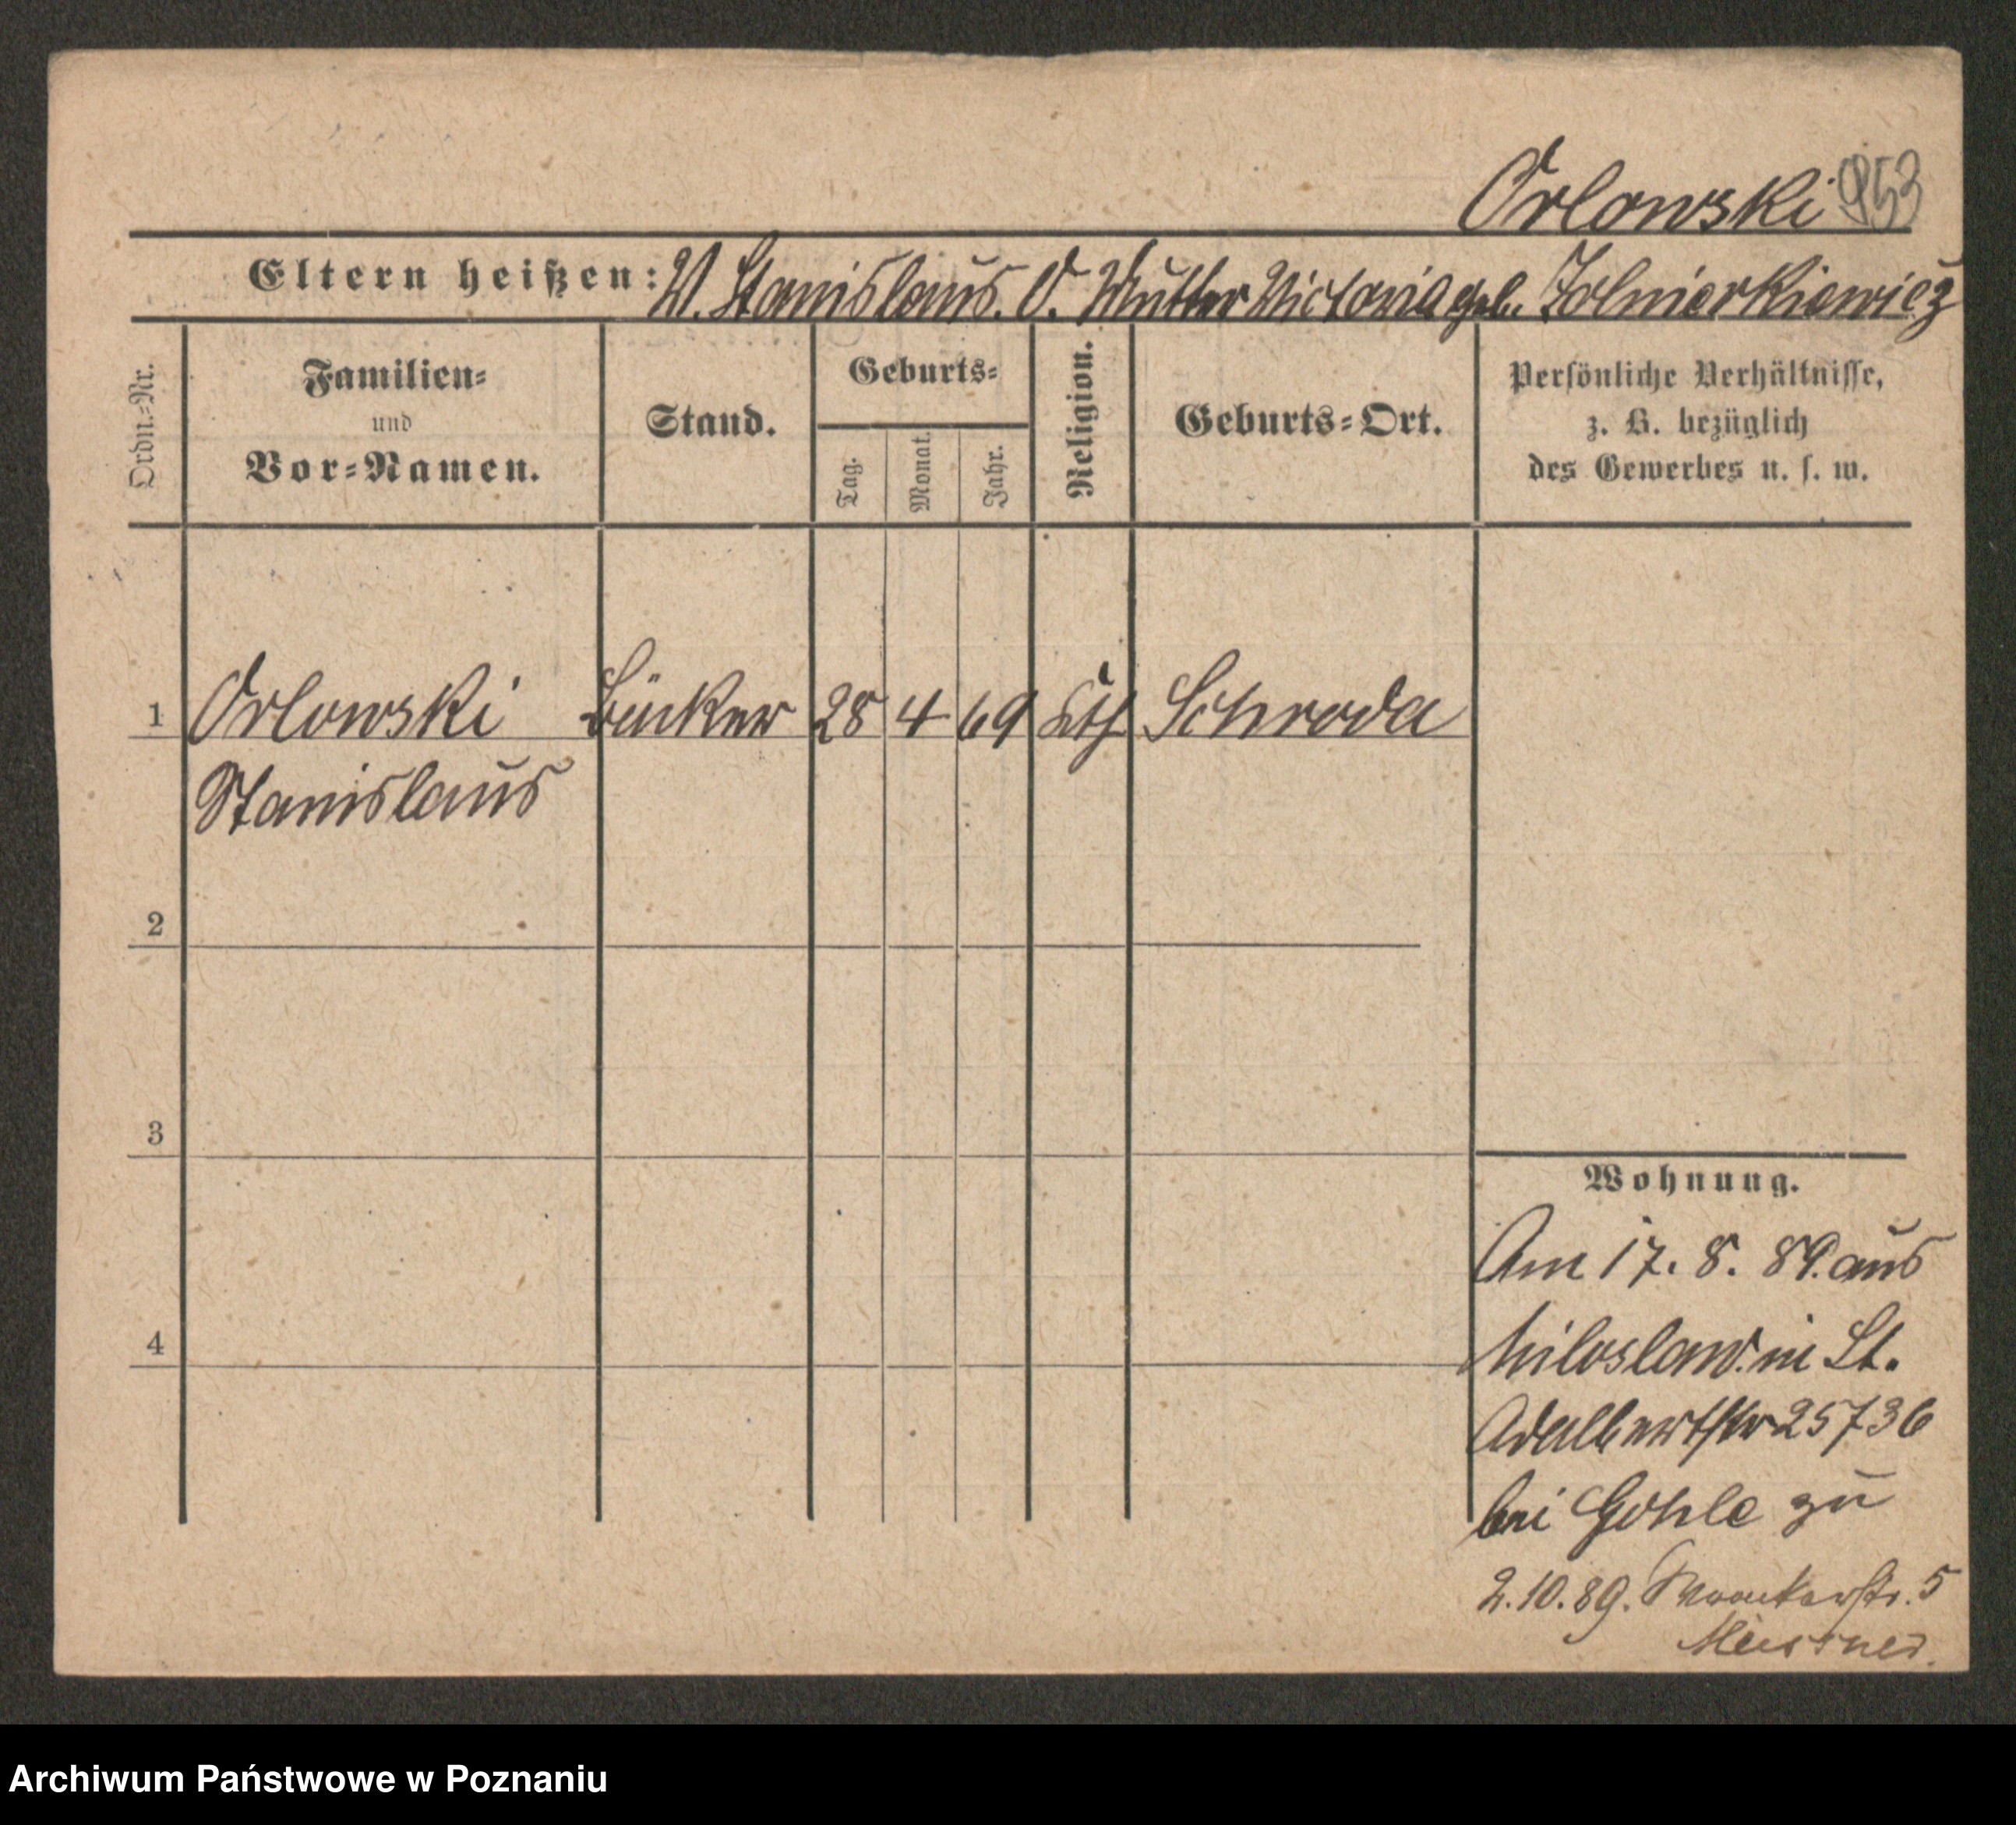 Orlowski 953
Eltern heißen: V. Stanislaus. O. Mutter Victoria geb. Zolnierkiewicz
Ordn.-Nr.
Familien-
und
Vor-Namen.
Stand.
Geburts-
Tag.
Monat.
Jahr.
Religion.
Geburts-Ort.
Persönliche Verhältnisse,
z. B. bezüglich
des Gewerbes u. s. w.
1 Orlowski Bäcker 28 4 69 kth Schroda
Stanislaus
2
3
4
Wohnung.
Am 17. 8. 89. aus
Miloslaw. in St.
Adalbertstr 25/36
bei Gohle zu
2.10.89. Wronkerstr. 5
Meissner.
Archiwum Państwowe w Poznaniu